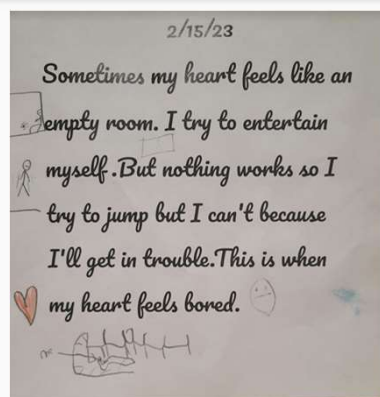 2/15/23
Sometimes my heart feels like an
empty room. I try to entertain
myself.But nothing works so I
try to jump but I can't because
I'll get in trouble.This is when
my heart feels bored.